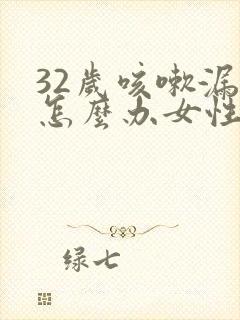 32歲咳嗽漏
怎麼办女性
绿七